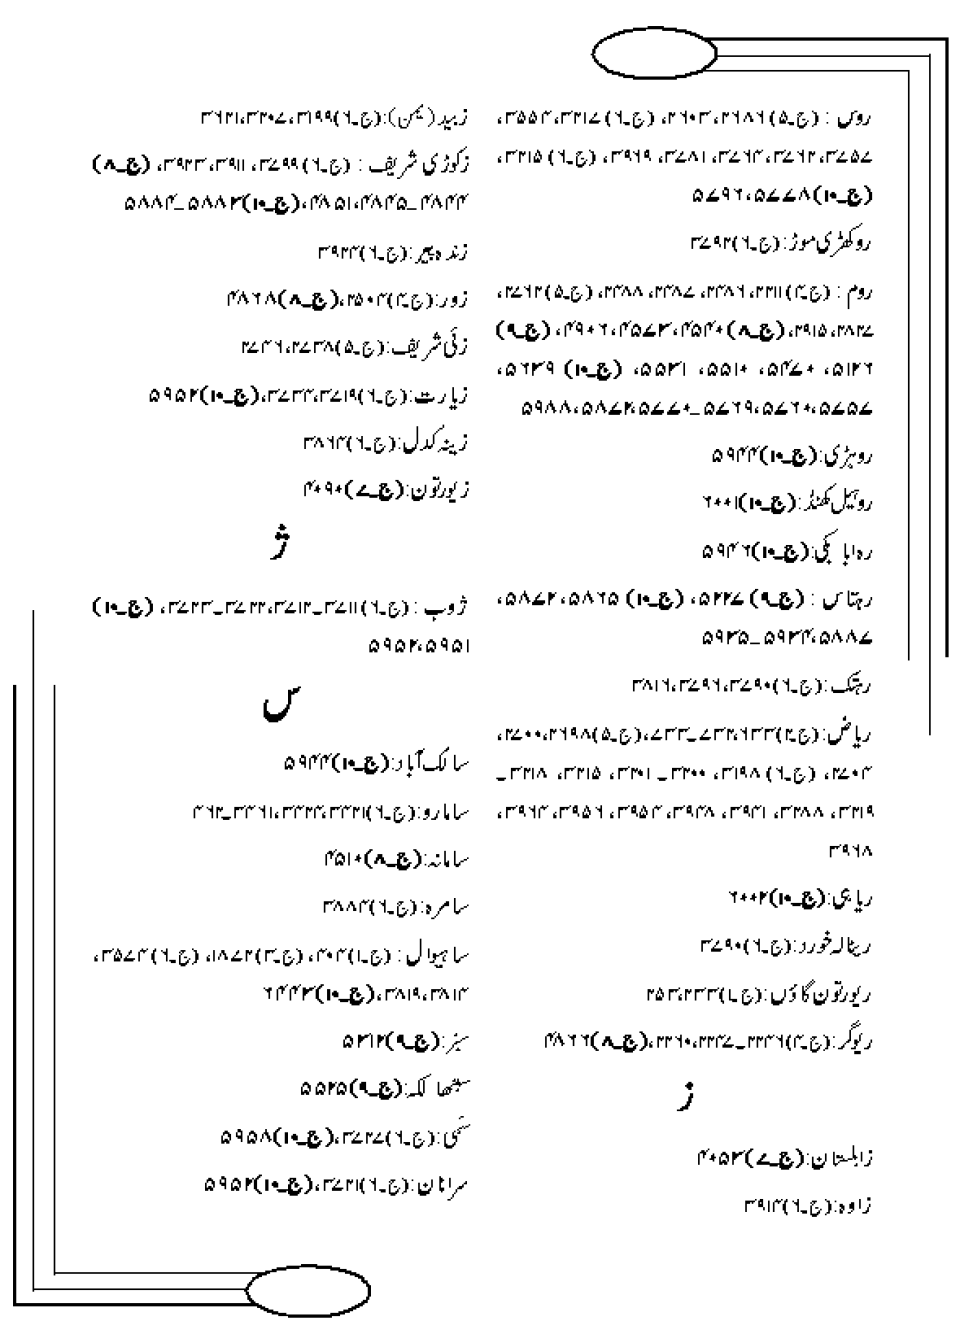 روس : (ج۔۵) ۲۶۸۶، ۲۶۰۳، (ج۔۶) ۳۲۱۷، ۳۵۵۴،
۳۷۵۷، ۳۷۶۲، ۳۷۶۴، ۳۷۸۱، ۳۹۶۹، (ج۔۶) ۳۲۱۵،
(ج۔۱۰) ۵۷۷۸، ۵۷۹۶
روکھڑی موڑ: (ج۔۶) ۳۷۹۲
روم : (ج۔۴) ۲۲۱۱، ۲۳۸۶، ۲۳۸۷، ۲۳۸۸، (ج۔۵) ۲۷۶۲،
۲۸۲۷، ۲۹۱۵، (ج۔۸) ۴۵۴۰، ۴۵۷۳، ۴۹۰۶، (ج۔۹)
۵۱۲۶، ۵۴۷۰، ۵۵۱۰، ۵۵۳۱، (ج۔۱۰) ۵۶۳۹،
۵۷۵۷، ۵۷۶۰، ۵۷۶۹۔۵۷۷۰، ۵۸۷۲، ۵۹۸۸
روہڑی: (ج۔۱۰) ۵۹۴۴
روہیل کھنڈ: (ج۔۱۰) ۶۰۰۱
رہ ابا بکی: (ج۔۱۰) ۵۹۴۶
رہتاس : (ج۔۹) ۵۲۲۷، (ج۔۱۰) ۵۸۶۵، ۵۸۷۲،
۵۸۸۷، ۵۹۳۴۔۵۹۳۵
رہتک: (ج۔۶) ۳۷۹۰، ۳۷۹۶، ۳۸۱۶
ریاض: (ج۔۲) ۶۳۳، ۷۳۲۔۷۳۳، (ج۔۵) ۲۶۹۸، ۲۷۰۰،
۲۷۰۴، (ج۔۶) ۳۱۹۸، ۳۲۰۰۔۳۲۰۱، ۳۲۱۵، ۳۲۱۸۔
۳۲۱۹، ۳۲۸۸، ۳۹۴۱، ۳۹۴۸، ۳۹۵۴، ۳۹۵۶، ۳۹۶۴،
۳۹۶۸
ریاہی: (ج۔۱۰) ۶۰۰۲
رینالہ خورد: (ج۔۶) ۳۷۹۰
ریورتون گاؤں: (ج۔۱) ۲۳۳، ۲۵۳
ریوگر: (ج۔۴) ۲۲۴۶۔۲۲۴۷، ۲۲۶۰، (ج۔۸) ۴۸۶۶
ز
زابلستان: (ج۔۷) ۴۰۵۳
زاوہ: (ج۔۶) ۳۹۱۴
زبید (یمن): (ج۔۶) ۳۱۹۹، ۳۲۰۷، ۳۶۲۱
زکوڑی شریف : (ج۔۶) ۳۷۹۹، ۳۹۱۱، ۳۹۲۳، (ج۔۸)
۴۸۴۴۔۴۸۴۵، ۴۸۵۱، (ج۔۱۰) ۵۸۸۳۔۵۸۸۴
زندہ پیر: (ج۔۶) ۳۹۲۴
زور: (ج۔۴) ۲۵۰۴، (ج۔۸) ۴۸۶۸
زئی شریف: (ج۔۵) ۲۷۳۸، ۲۷۴۶
زیارت: (ج۔۶) ۳۷۱۹، ۳۷۳۴، (ج۔۱۰) ۵۹۵۲
زینہ کدل: (ج۔۶) ۳۸۶۴
زیورتون: (ج۔۷) ۴۰۹۰
ژ
ژوب : (ج۔۶) ۳۷۱۱۔۳۷۱۲، ۳۷۲۲۔۳۷۲۳، (ج۔۱۰)
۵۹۵۱، ۵۹۵۲
س
سالک آباد: (ج۔۱۰) ۵۹۴۴
سامارو: (ج۔۶) ۳۴۲۱، ۳۴۲۴، ۳۴۶۱۔۴۶۲
سامانہ: (ج۔۸) ۴۵۱۰
سامرہ: (ج۔۶) ۳۸۸۴
ساہیوال : (ج۔۱) ۴۰۴، (ج۔۳) ۱۸۷۲، (ج۔۶) ۳۵۷۴،
۳۸۱۴، ۳۸۱۹، (ج۔۱۰) ۶۴۴۳
سبز: (ج۔۹) ۵۳۱۲
سیٹھا لکہ: (ج۔۹) ۵۵۲۵
سخی: (ج۔۶) ۳۷۲۷، (ج۔۱۰) ۵۹۵۸
سرانان: (ج۔۶) ۳۷۲۱، (ج۔۱۰) ۵۹۵۲